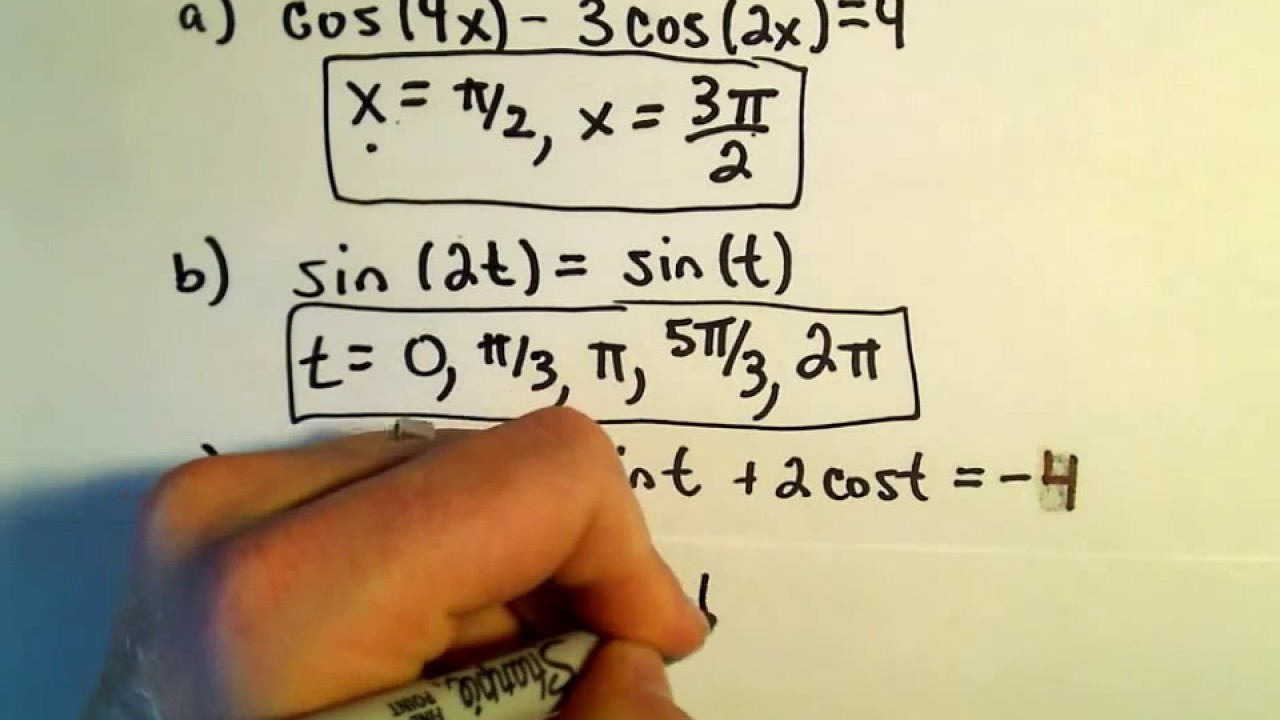 a) cos(4x) - 3cos(2x)=4
x = π/2, x = 3π/2
b) sin(2t) = sin(t)
t = 0, π/3, π, 5π/3, 2π
t + 2cost = -4
Sharpie
FINE
POINT